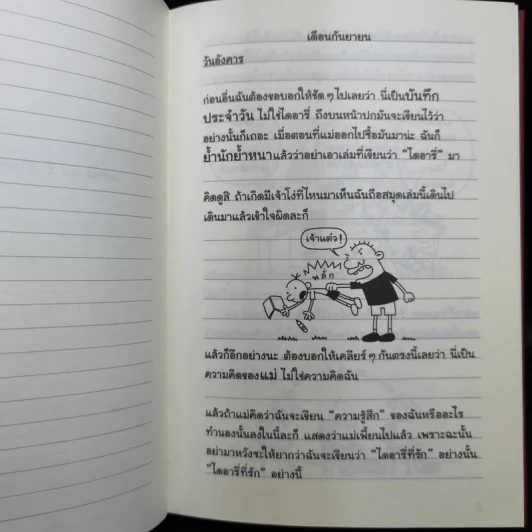 เดือนกันยายน
วันอังคาร
ก่อนอื่นฉันต้องขอบอกให้ชัด ๆ ไปเลยว่า นี่เป็นบันทึก
ประจำวัน ไม่ใช่ไดอารี่ ถึงบนหน้าปกมันจะเขียนไว้ว่า
อย่างนั้นก็เถอะ เมื่อตอนที่แม่ออกไปซื้อมันมาน่ะ ฉันก็
ย้ำนักย้ำหนาแล้วว่าอย่าเอาเล่มที่เขียนว่า “ไดอารี่” มา
คิดดูสิ ถ้าเกิดมีเจ้าโง่ที่ไหนมาเห็นฉันถือสมุดเล่มนี้เดินไป
เดินมาแล้วเข้าใจผิดละก็
เจ้าแต๋ว!
พลั่ก
แล้วก็อีกอย่างนะ ต้องบอกให้เคลียร์ ๆ กันตรงนี้เลยว่า นี่เป็น
ความคิดของแม่ ไม่ใช่ความคิดฉัน
แล้วถ้าแม่คิดว่าฉันจะเขียน “ความรู้สึก” ของฉันหรืออะไร
ทำนองนั้นลงในนี้ละก็ แสดงว่าแม่เพี้ยนไปแล้ว เพราะฉะนั้น
อย่ามาหวังซะให้ยากว่าฉันจะเขียนว่า “ไดอารี่ที่รัก” อย่างนั้น
“ไดอารี่ที่รัก” อย่างนี้